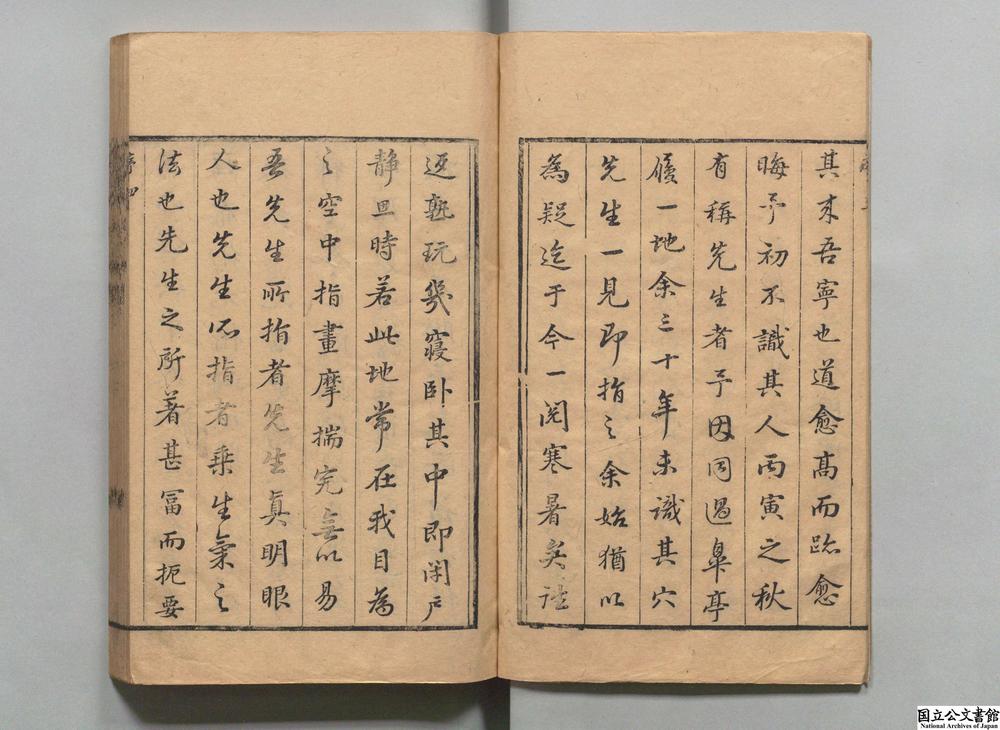 其來吾寧也道愈高而跡愈
晦予初不識其人丙寅之秋
有稱先生者予因同過皐亭
履一地余三十年未識其穴
先生一見即指之余始猶以
為疑迄于今一閱寒暑矣往
返熟玩幾寢卧其中即閑戶
靜且時若此地常在我目為
之空中指畫摩揣完無以易
吾先生所指者先生真明眼
人也先生所指者乗生氣之
法也先生之所著甚冨而扼要
序四
国立公文書館
National Archives of Japan